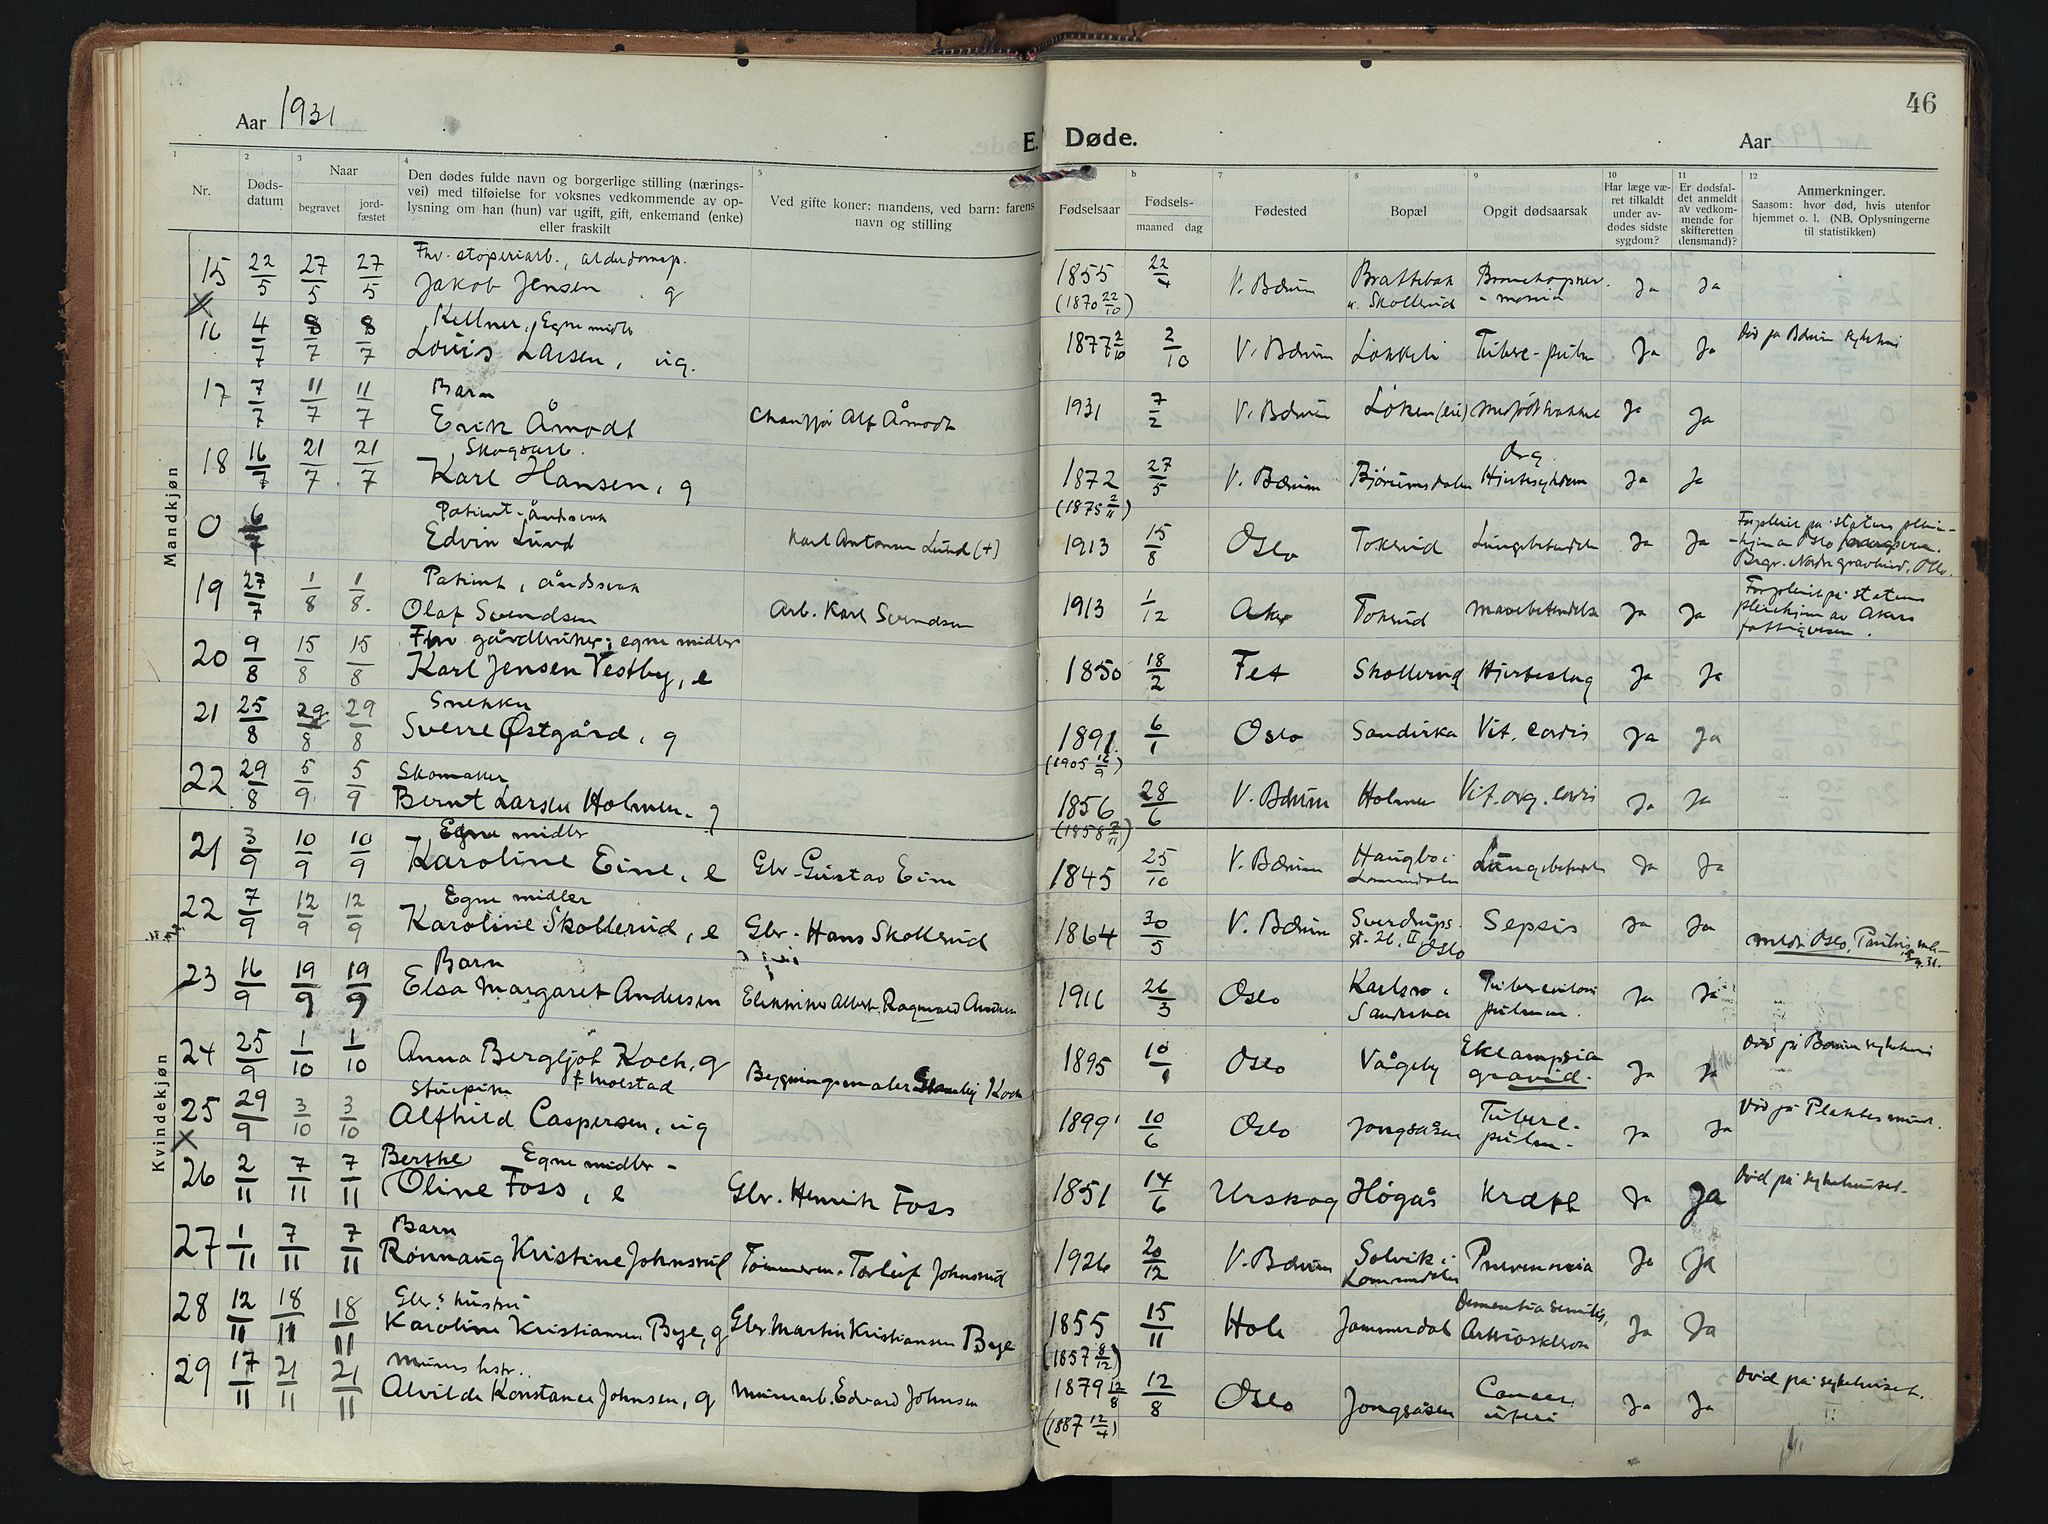 Aar 1931
E. Døde.
Aar
46
1
2
3
4
5
b
7
8
9
10
11
12
Nr.
Døds-
datum
Naar
begravet
jord-
fæstet
Den dødes fulde navn og borgerlige stilling (nærings-
vei) med tilføielse for voksnes vedkommende av op-
lysning om han (hun) var ugift, gift, enkemand (enke)
eller fraskilt
Ved gifte koner: mandens, ved barn: farens
navn og stilling
Fødselsaar
Fødsels-
maaned dag
Fødested
Bopæl
Opgit dødsaarsak
Har læge væ-
ret tilkaldt
under av-
dødes sidste
sygdom?
Er dødsfal-
det anmeldt
av vedkom-
mende for
skifteretten
(lensmand)?
Anmerkninger.
Saasom: hvor død, hvis utenfor
hjemmet o. l. (NB. Oplysningerne
til statistikken)
Mandkjøn
Fhv. stoperiarb., alderdomsp.
15 22/5 27/5 27/5 Jakob Jensen, g 1855 22/4 V. Bærum Brattebak Bronchopneu-
(1870 22/10) u. Skollerud -monia Ja Ja
Kellner, Egne midler
16 4/7 8/7 8/7 Louis Larsen, ug. 1877 2/10 2/10 V. Bærum Løkkeli Tuberc. pulm Ja Ja Død på Bærum sykehus
Barn
17 7/7 11/7 11/7 Erik Åmodt Chauffør Alf Åmodt 1931 7/2 V. Bærum Løken (eie) Ja Ja
Skogsarb.
18 16/7 21/7 21/7 Karl Hansen, g 1872 27/5 V. Bærum Bjørumsdalen Org. Hjertesykdom Ja Ja
(1875 2/11)
Patient, åndssvak
0 6/7 Edvin Lund Karl Antonsen Lund (+) 1913 15/8 Oslo Tokerud Lungebetændelse Ja Ja Forpleiet på statens pleie-
-hjem av Oslo
Begr. Nordre gravlund, Oslo.
Patient, åndssvak
19 27/7 1/8 1/8. Olaf Svendsen Arb. Karl Svendsen 1913 1/12 Aker Tokerud Mavebetændelse Ja Ja Forpleiet på statens
pleiehjem av Akers
fattigvesen.
Fhv. gårdbruker; egne midler
20 9/8 15/8 15/8 Karl Jensen Vestby, e 1850 18/2 Fet Skollerud Hjerteslag Ja Ja
Snekker
21 25/8 29/8 29/8 Sverre Østgård, g 1891 6/1 Oslo Sandvika Vit. cordis Ja Ja
(1905 12/9)
Skomaker
22 29/8 5/9 5/9 Bernt Larsen Holmen, g 1856 28/6 V. Bærum Holmen Vit. org. cordis Ja Ja
(1858 7/11)
Kvindekjøn
Egne midler
21 3/9 10/9 10/9 Karoline Eine, e Gbr. Gustav Eine 1845 25/10 V. Bærum Haugbo i
Lommedalen Lungebetændelse Ja Ja
Egne midler
22 7/9 12/9 12/9 Karoline Skollerud, e Gbr. Hans Skollerud 1864 30/5 V. Bærum Sverdrups
gt. 26, II Oslo Sepsis Ja Ja
Barn
23 16/9 19/9 19/9 Elsa Margaret Andersen Elektriker Albert Ragnvald Andersen 1916 26/3 Oslo Karlsro i
Sandvika Tuberculosis
pulmon. Ja Ja
24 25/9 1/10 1/10 Anna Bergljot Koch, g
f. Molstad Bygningsmaler Koch 1895 10/1 Oslo Vågeby Eklampsia
gravid. Ja Ja Død på Bærum sykehus
Stuepike
25 29/9 3/10 3/10 Alfhild Caspersen, ug 1899 10/6 Oslo Jongsåsen Tuberc.
pulm. Ja Ja
Berthe Egne midler
26 2/11 7/11 7/11 Oline Foss, e Gbr. Henrik Foss 1851 14/6 Urskog Høgås Kræft Ja Ja Død på sykehuset
Barn
27 1/11 7/11 7/11 Rønnaug Kristine Johnsrud Tømmerm. Torleif Johnsrud 1926 20/12 V. Bærum Solvik i
Lommedalen Pneumonia Ja Ja
Gbr.s hustru
28 12/11 18/11 18/11 Karoline Kristiansen Bye, g Gbr. Martin Kristiansen Bye 1855 15/11 Hole Jammerdal Dementia senilis,
Ja Ja
(1857 8/12)
Murers hstr.
29 17/11 21/11 21/11 Alvilde Konstance Johnsen, g Murarb. Edvard Johnsen 1879 12/8 12/8 Oslo Jongsåsen Cancer
uteri Ja Ja Død på sykehuset.
(1887 12/4)